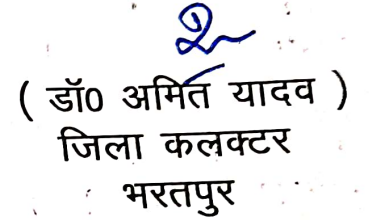 ( डॉ0 अमित यादव )
जिला कलक्टर
भरतपुर